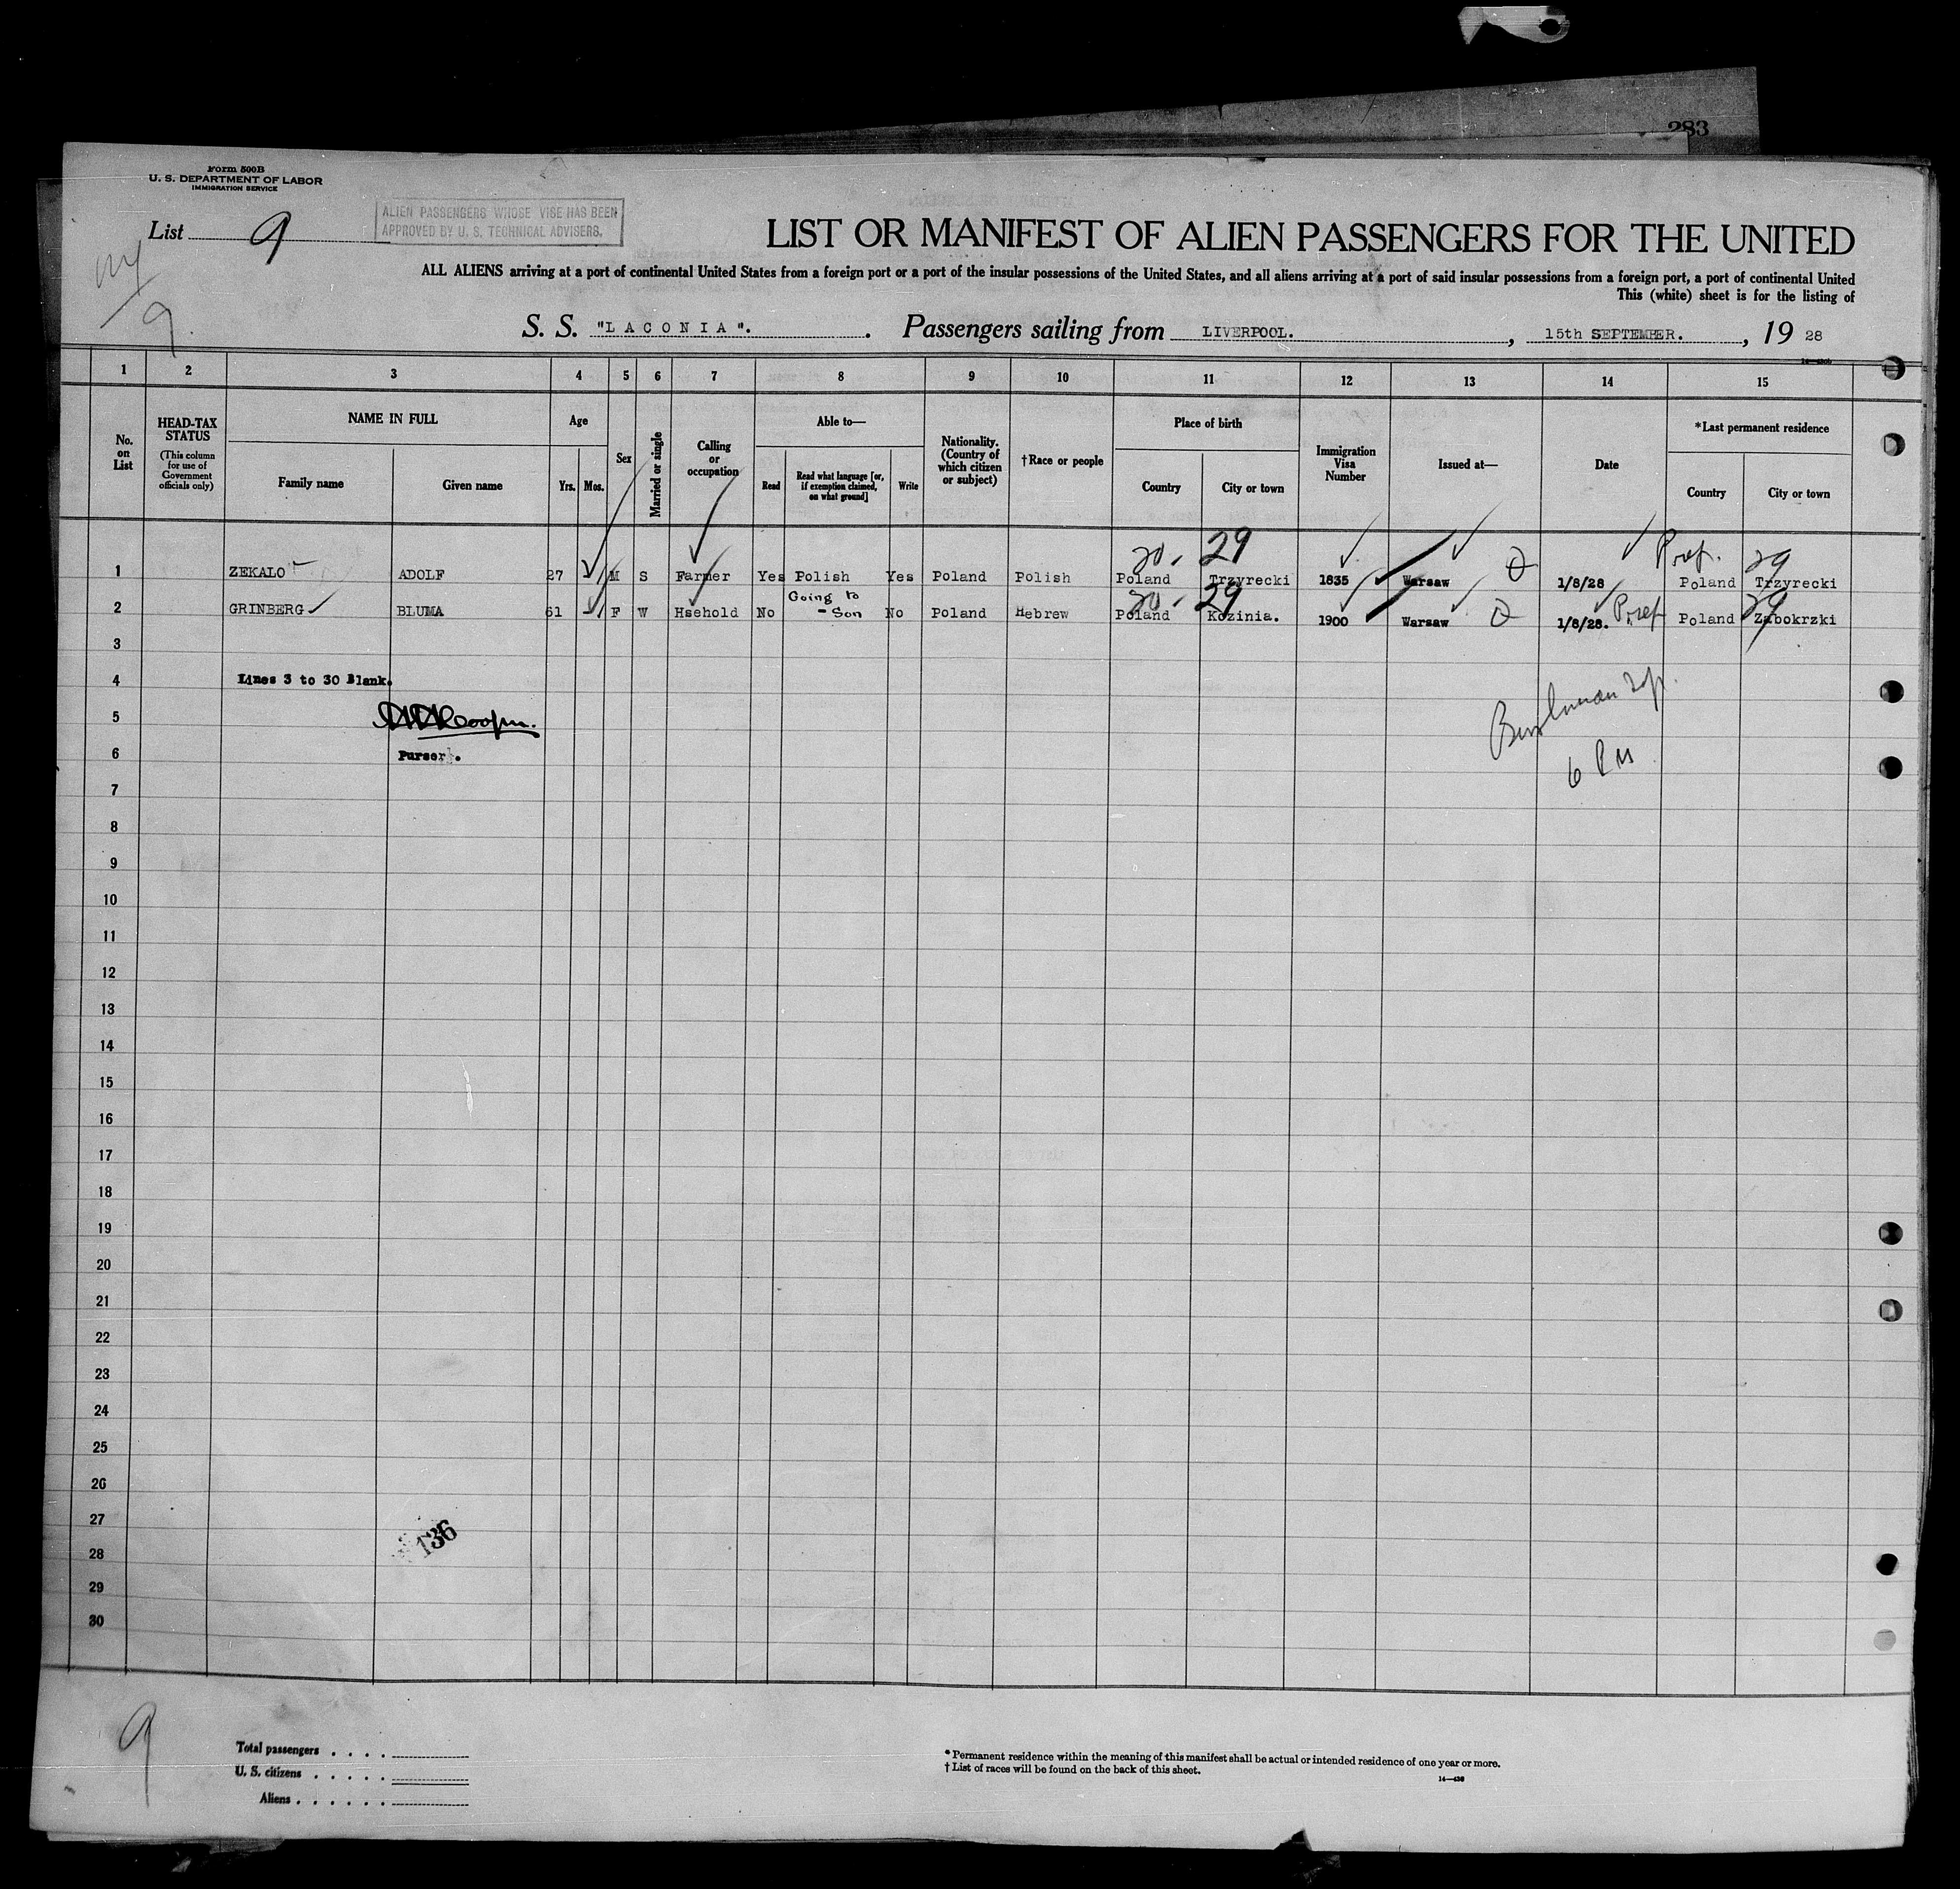 283
Form 500B
U. S. DEPARTMENT OF LABOR
IMMIGRATION SERVICE
List 9
ALIEN PASSENGERS WHOSE VISE HAS BEEN
APPROVED BY U. S. TECHNICAL ADVISERS.
LIST OR MANIFEST OF ALIEN PASSENGERS FOR THE UNITED
ALL ALIENS arriving at a port of continental United States from a foreign port or a port of the insular possessions of the United States, and all aliens arriving at a port of said insular possessions from a foreign port, a port of continental United
This (white) sheet is for the listing of
9
S. S. "LACONIA". Passengers sailing from LIVERPOOL. , 15th SEPTEMBER. , 19 28
1 2 3 4 5 6 7 8 9 10 11 12 13 14 15
No. on List
HEAD-TAX STATUS
(This column for use of Government officials only)
NAME IN FULL
Family name Given name
Age
Yrs. Mos.
Sex
Married or single
Calling or occupation
Able to—
Read Read what language [or, if exemption claimed, on what ground] Write
Nationality. (Country of which citizen or subject)
†Race or people
Place of birth
Country City or town
Immigration Visa Number
Issued at—
Date
*Last permanent residence
Country City or town
20. 29 Pref. 29
1 ZEKALO ADOLF 27 M S Farmer Yes Polish Yes Poland Polish Poland Trzyrecki 1835 Warsaw 1/8/28 Poland Trzyrecki
Going to 20 29 Pref 29
2 GRINBERG BLUMA 61 F W Hsehold No - Son No Poland Hebrew Poland Kozinia. 1900 Warsaw 1/8/28. Poland Zabokrzki
3
4 Lines 3 to 30 Blank.
5
6 Purser.
7
8
9
10
11
12
13
14
15
16
17
18
19
20
21
22
23
24
25
26
27
136
28
29
30
9
Total passengers . . . .
U. S. citizens . . . . .
Aliens . . . . . .
* Permanent residence within the meaning of this manifest shall be actual or intended residence of one year or more.
† List of races will be found on the back of this sheet.